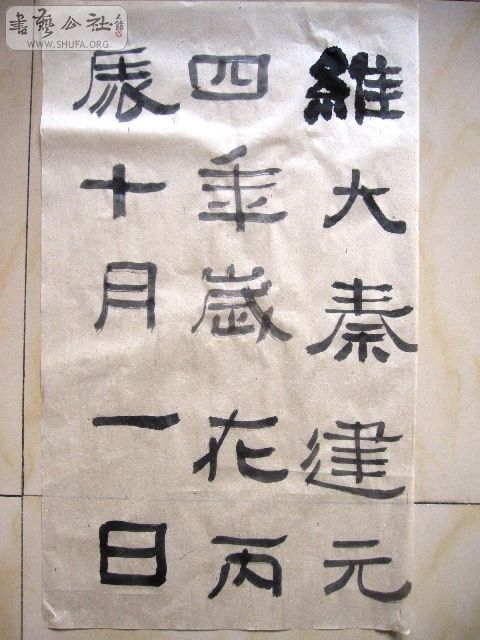 書藝公社
WWW.SHUFA.ORG
維大秦建元
四年歲在丙
辰十月一日